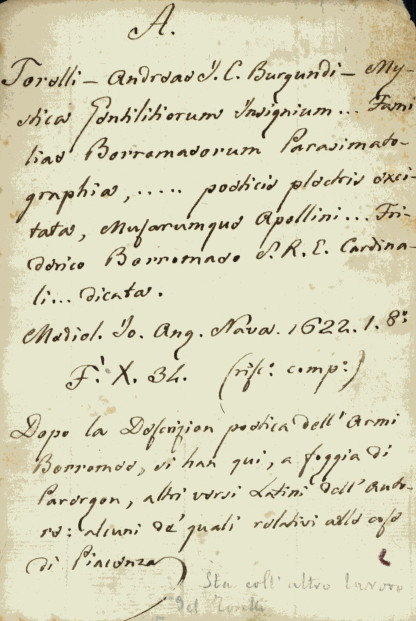 A.
Torelli – Andreae I. C. Burgundi – My-
stica Gentilitiorum Insignium... Fami
liae Borromaeorum Parasimato-
graphia, ..... poeticis plectris exci-
tata, Musarumque Apollini... Fri-
derico Borromaeo S. R. E. Cardina-
li... dicata.
Mediol. Io. Ang. Nava. 1622. 1. 8:
F. X. 34. (risc: comp:)
Dopo la Descrizion poetica dell' Armi
Borromee, si han qui, a foggia di
Parergon, altri versi Latini dell' Auto-
re: alcuni de' quali relativi alle cose
di Piacenza
Sta coll' altro lavoro
del Torelli